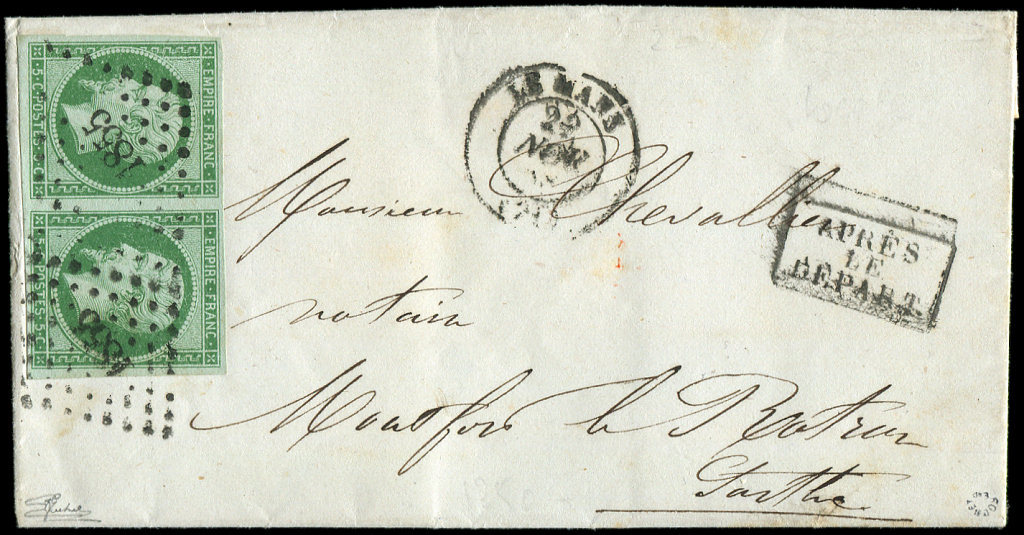 EMPIRE FRANC.
5.C.POSTES.5.C.
1835
EMPIRE FRANC.
5.C.POSTES.5.C.
LE MANS
22
NOV
APRÈS
LE
DEPART
Monsieur Chevallier
notaire
Montfort le Rotrou
Sarthe